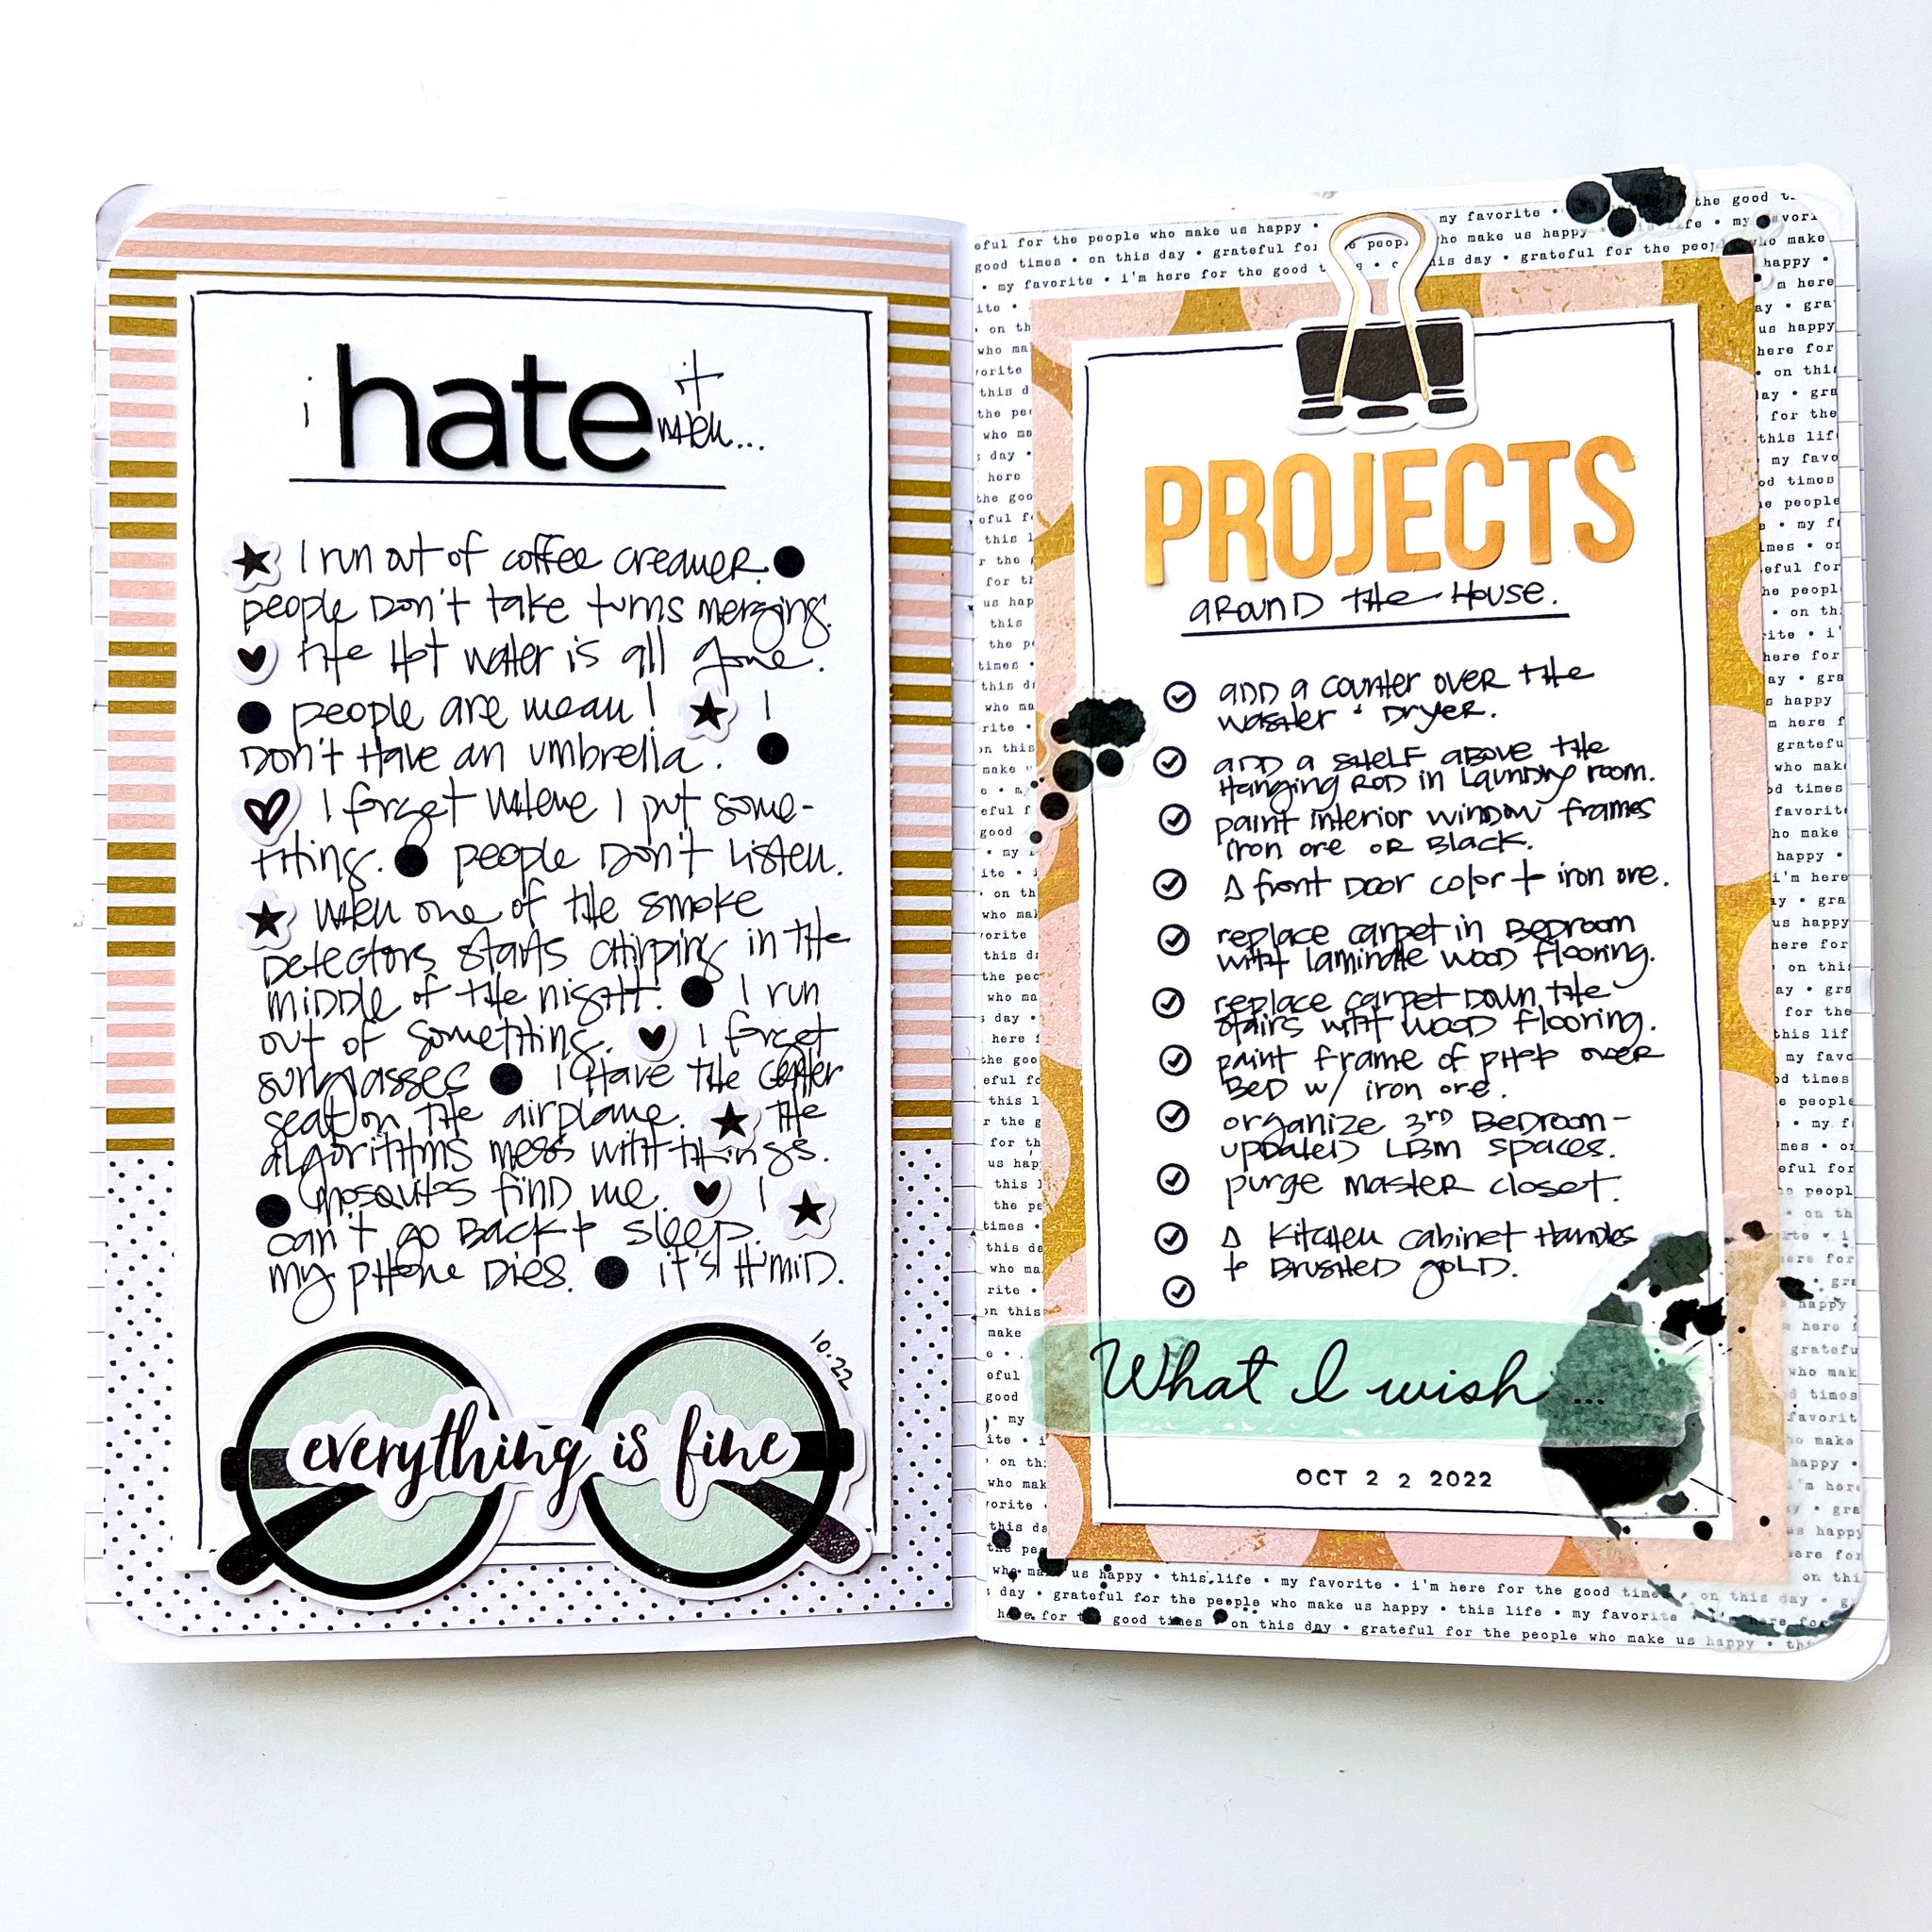 i hate it when...
I run out of coffee creamer.
people don't take turns merging.
the hot water is all gone.
people are mean! I
don't have an umbrella.
I forget where I put some-
thing. people don't listen.
when one of the smoke
detectors starts chirping in the
middle of the night. I run
out of something. I forget
sunglasses I have the center
seat on the airplane. the
algorithms mess with things.
mosquitos find me. I
can't go back to sleep.
my phone dies. it's humid.
10.22
everything is fine
PROJECTS
around the house.
add a counter over the
washer + dryer.
add a shelf above the
hanging rod in laundry room.
paint interior window frames
iron ore or black.
Δ front door color to iron ore.
replace carpet in bedroom
with laminate wood flooring.
replace carpet down the
stairs with wood flooring.
paint frame of photo over
bed w/ iron ore.
organize 3rd bedroom-
updated LBM spaces.
purge master closet.
Δ kitchen cabinet handles
to brushed gold.
What I wish ...
OCT 2 2 2022
us happy • this life • my favorite • i'm here for the good times • on this day
day • grateful for the people who make us happy • this life • my favorite • i'm here for
here for the good times • on this day • grateful for the people who make us happy